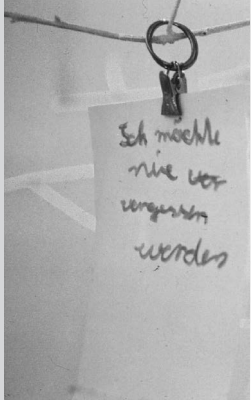 Ich möchte
nie ver
vergessen
werden